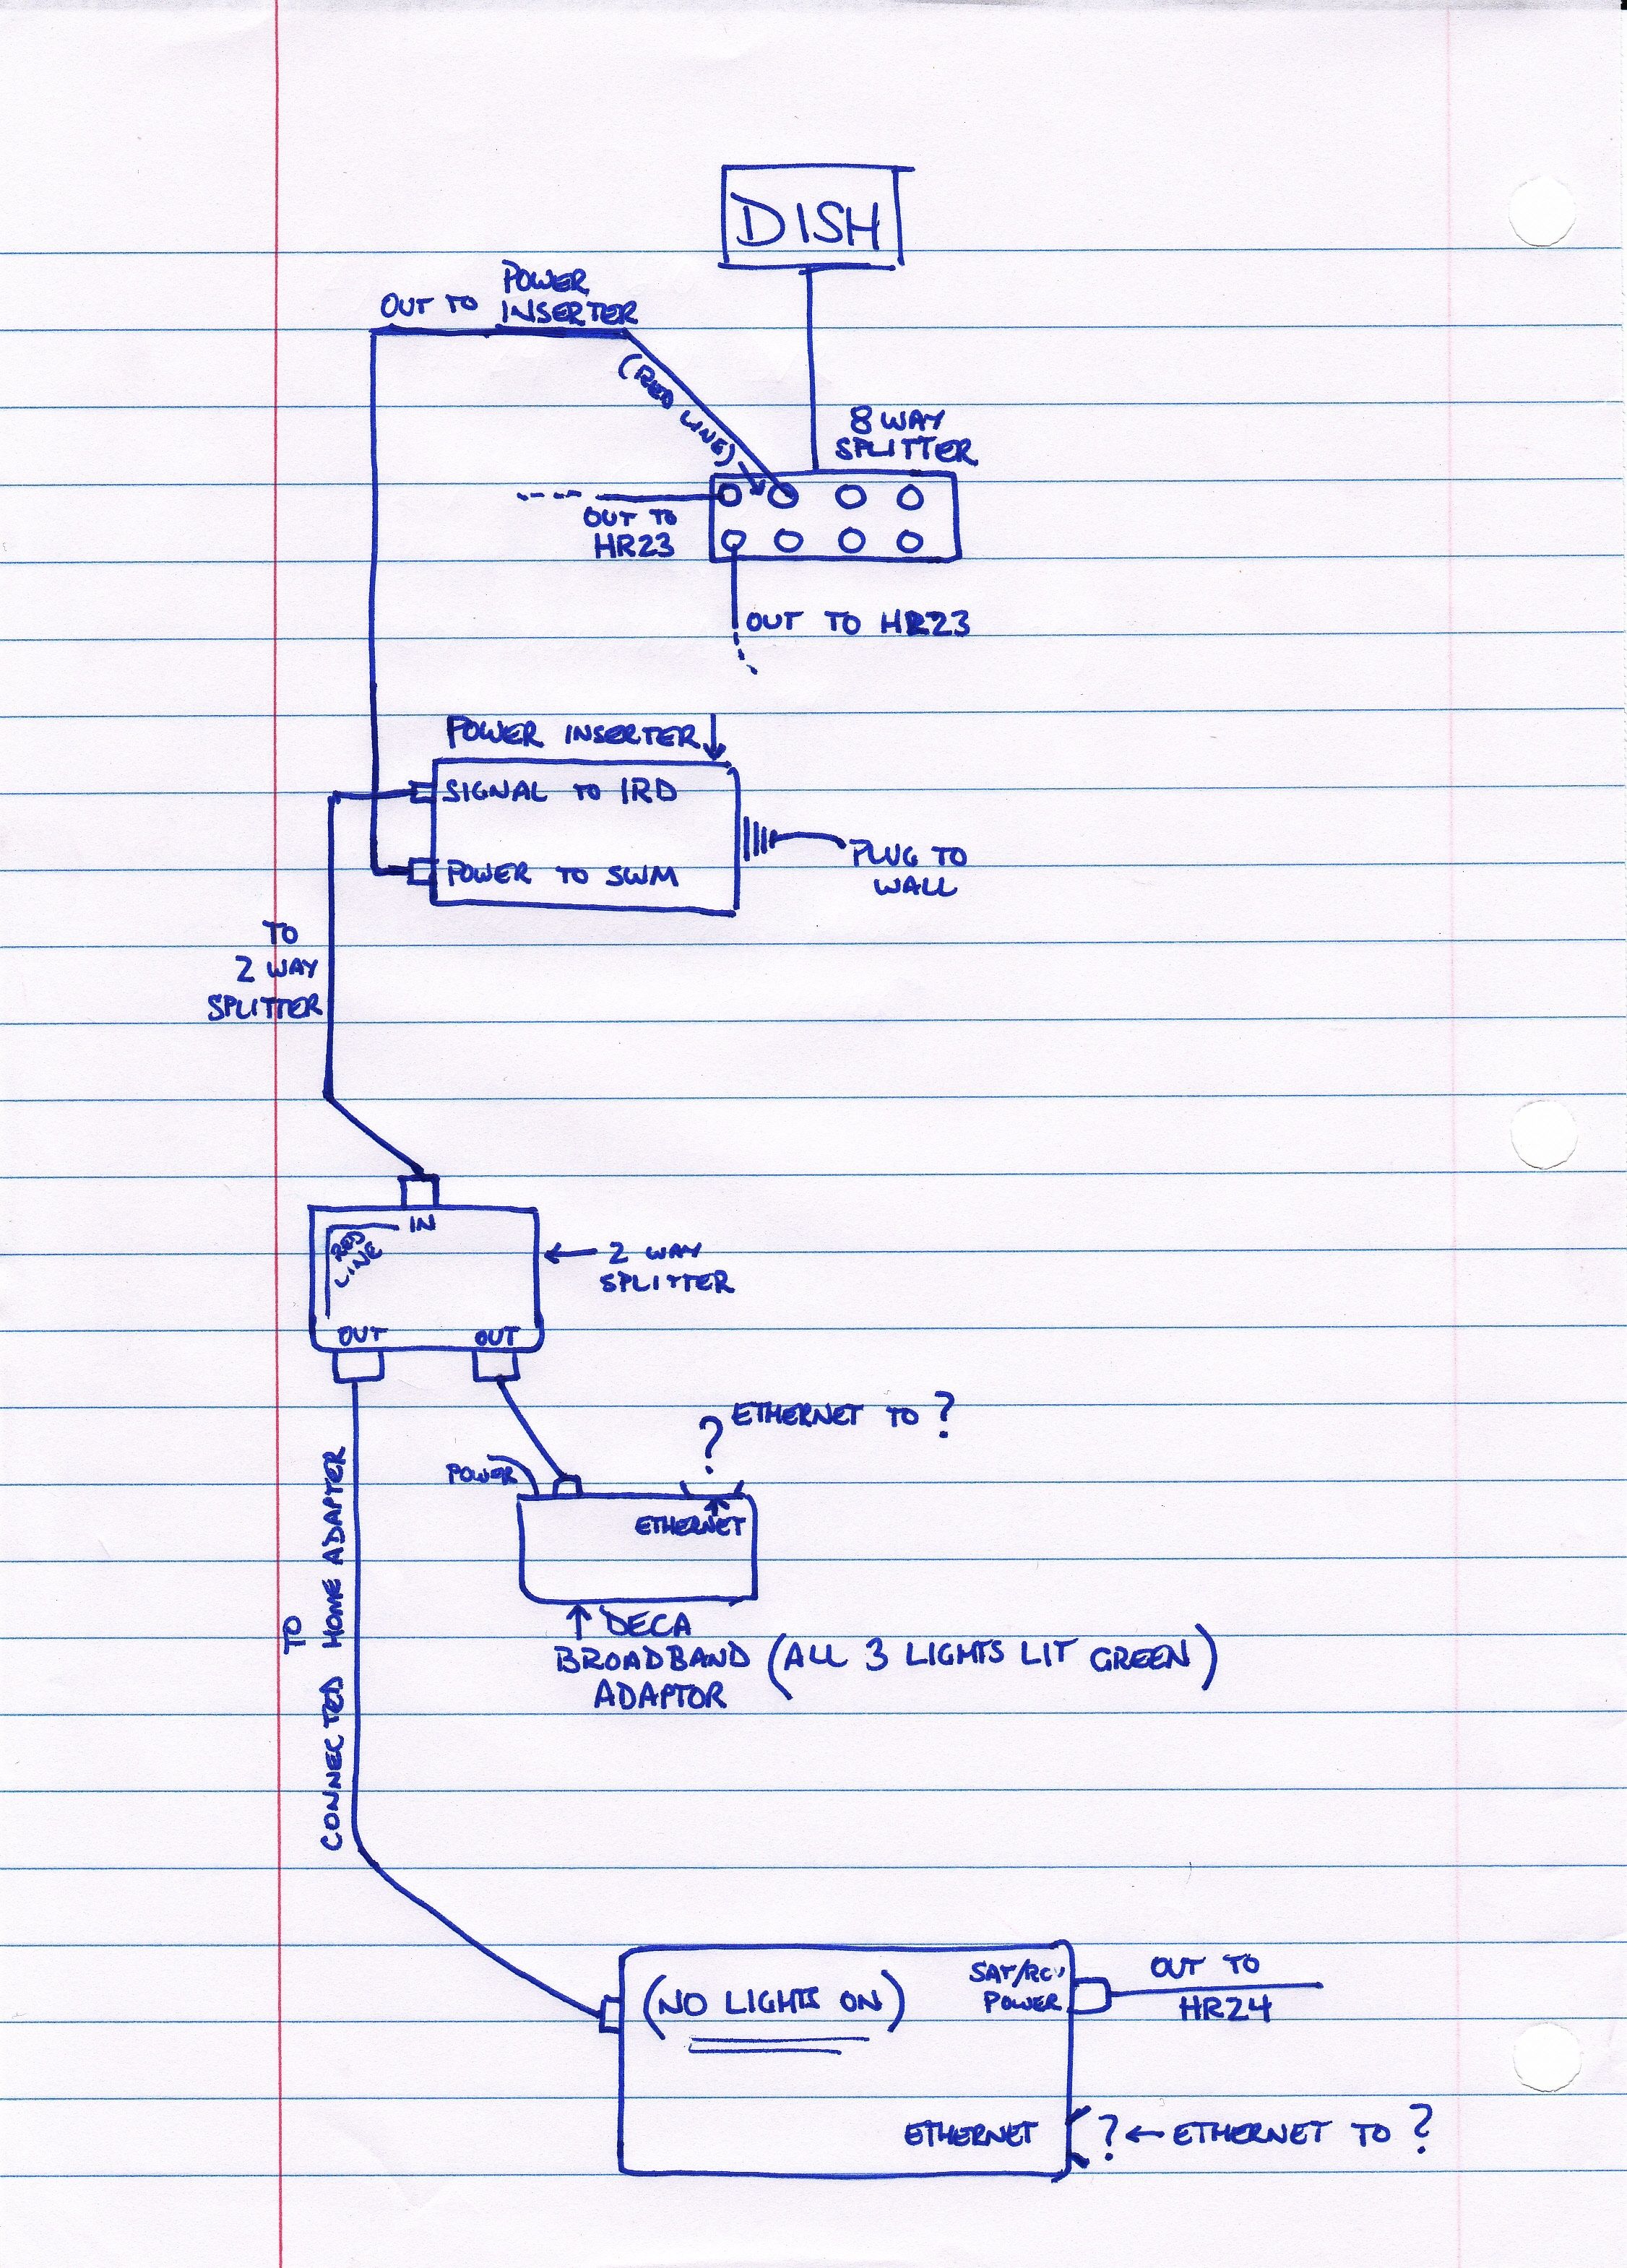 DISH
POWER
OUT TO INSERTER
(RED LINE)
8 WAY
SPLITTER
OUT TO
HR23
OUT TO HR23
POWER INSERTER
SIGNAL TO IRD
POWER TO SWM
PLUG TO
WALL
TO
2 WAY
SPLITTER
IN
RED
LINE
2 WAY
SPLITTER
OUT OUT
ETHERNET TO ?
?
POWER
ETHERNET
TO
CONNECTED HOME ADAPTER
DECA
BROADBAND (ALL 3 LIGHTS LIT GREEN)
ADAPTOR
(NO LIGHTS ON)
SAT/RCV
POWER
OUT TO
HR24
ETHERNET ? ← ETHERNET TO ?